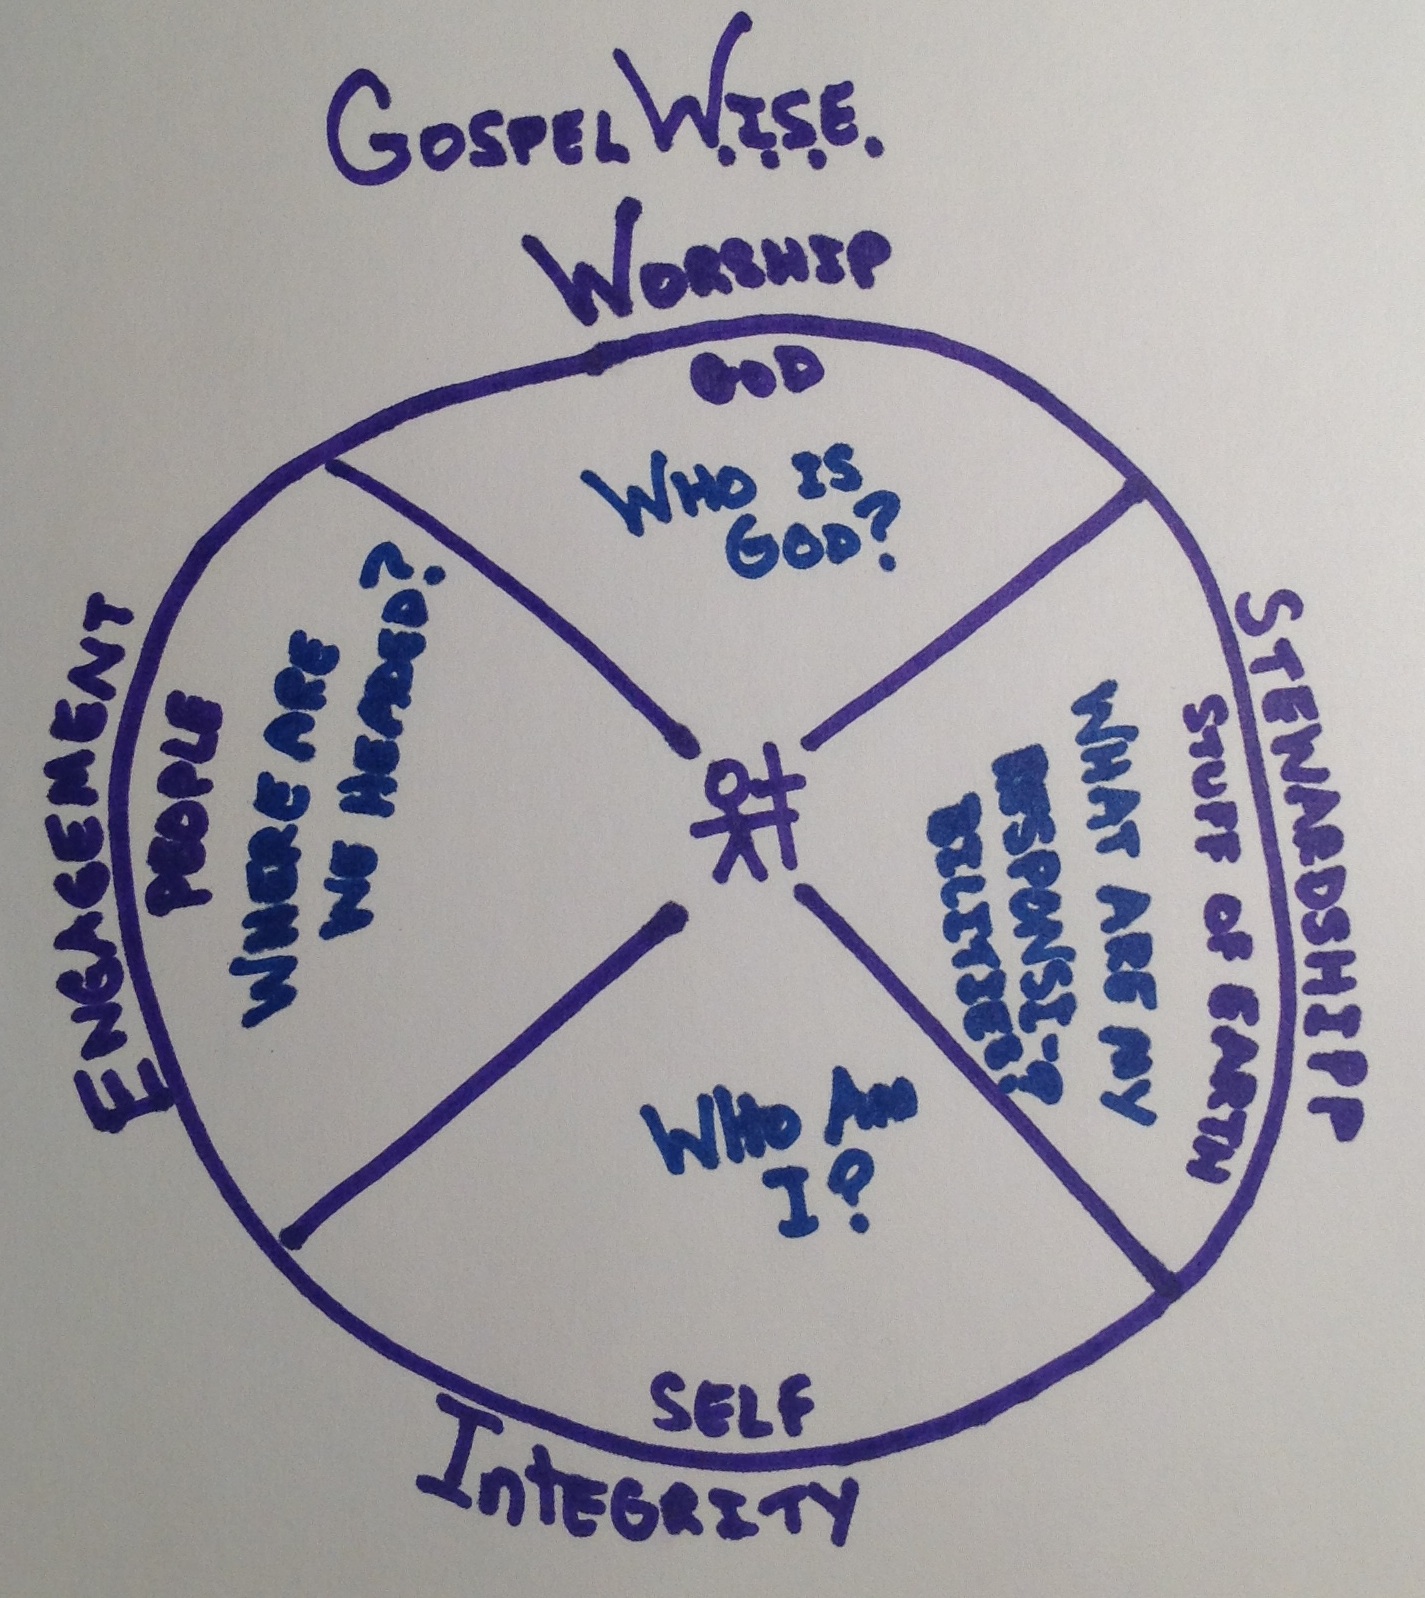 GOSPEL W.I.S.E.
WORSHIP
GOD
WHO IS
GOD?
STEWARDSHIP
STUFF OF EARTH
WHAT ARE MY
RESPONSI-
BILITIES?
WHO AM
I?
SELF
INtEGRITY
ENGAGEMENT
PEOPLE
WHERE ARE
WE HEADED?